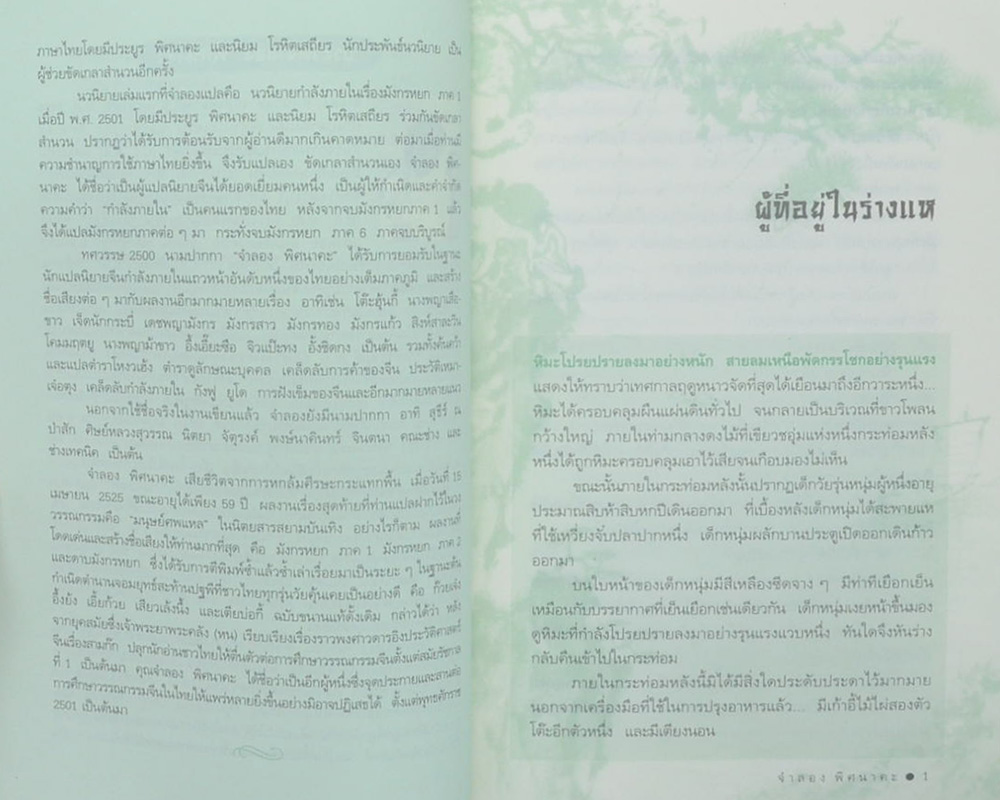 ภาษาไทยโดยมีประยูร พิศนาคะ และนิยม โรหิตเสถียร นักประพันธ์นวนิยาย เป็น
ผู้ช่วยขัดเกลาสำนวนอีกครั้ง
นวนิยายเล่มแรกที่จำลองแปลคือ นวนิยายกำลังภายในเรื่องมังกรหยก ภาค 1
เมื่อปี พ.ศ. 2501 โดยมีประยูร พิศนาคะ และนิยม โรหิตเสถียร ร่วมกันขัดเกลา
สำนวน ปรากฏว่าได้รับการต้อนรับจากผู้อ่านดีมากเกินคาดหมาย ต่อมาเมื่อท่านมี
ความชำนาญการใช้ภาษาไทยยิ่งขึ้น จึงรับแปลเอง ขัดเกลาสำนวนเอง จำลอง พิศ-
นาคะ ได้ชื่อว่าเป็นผู้แปลนิยายจีนได้ยอดเยี่ยมคนหนึ่ง เป็นผู้ให้กำเนิดและคำจำกัด
ความคำว่า "กำลังภายใน" เป็นคนแรกของไทย หลังจากจบมังกรหยกภาค 1 แล้ว
จึงได้แปลมังกรหยกภาคต่อ ๆ มา กระทั่งจบมังกรหยก ภาค 6 ภาคจบบริบูรณ์
ทศวรรษ 2500 นามปากกา "จำลอง พิศนาคะ" ได้รับการยอมรับในฐานะ
นักแปลนิยายจีนกำลังภายในแถวหน้าอันดับหนึ่งของไทยอย่างเต็มภาคภูมิ และสร้าง
ชื่อเสียงต่อ ๆ มากับผลงานอีกมากมายหลายเรื่อง อาทิเช่น โต๊ะฮุ้นกี้ นางพญาเสือ-
ขาว เจ็ดนักกระบี่ เดชพญามังกร มังกรสาว มังกรทอง มังกรแก้ว สิงห์สาละวิน
โคมมฤตยู นางพญาม้าขาว อึ้งเอี๊ยะซือ จิวแป๊ะทง อั้งชิดกง เป็นต้น รวมทั้งค้นคว้า
และแปลตำราโหงวเฮ้ง ตำราดูลักษณะบุคคล เคล็ดลับการค้าของจีน ประวัติเหมา-
เจ๋อตุง เคล็ดลับกำลังภายใน กังฟู ยูโด การฝังเข็มของจีนและอีกมากมายหลายแนว
นอกจากใช้ชื่อจริงในงานเขียนแล้ว จำลองยังมีนามปากกา อาทิ สุธีร์ ณ
ป่าสัก ศิษย์หลวงสุวรรณ นิตยา จัตุรงค์ พงษ์นาคินทร์ จินตนา คณะช่าง และ
ช่างเทคนิค เป็นต้น
จำลอง พิศนาคะ เสียชีวิตจากการหกล้มศีรษะกระแทกพื้น เมื่อวันที่ 15
เมษายน 2525 ขณะอายุได้เพียง 59 ปี ผลงานเรื่องสุดท้ายที่ท่านแปลฝากไว้ในวง
วรรณกรรมคือ "มนุษย์ศพแหล" ในนิตยสารสยามบันเทิง อย่างไรก็ตาม ผลงานที่
โดดเด่นและสร้างชื่อเสียงให้ท่านมากที่สุด คือ มังกรหยก ภาค 1 มังกรหยก ภาค 2
และดาบมังกรหยก ซึ่งได้รับการตีพิมพ์ซ้ำแล้วซ้ำเล่าเรื่อยมาเป็นระยะ ๆ ในฐานะต้น
กำเนิดตำนานจอมยุทธ์สะท้านปฐพีที่ชาวไทยทุกรุ่นวัยคุ้นเคยเป็นอย่างดี คือ ก๊วยเจ๋ง
อึ้งย้ง เอี้ยก้วย เสียวเล้งนึ่ง และเตียบ่อกี้ ฉบับขนานแท้ดั้งเดิม กล่าวได้ว่า หลัง
จากยุคสมัยซึ่งเจ้าพระยาพระคลัง (หน) เรียบเรียงเรื่องราวพงศาวดารอิงประวัติศาสตร์
จีนเรื่องสามก๊ก ปลุกนักอ่านชาวไทยให้ตื่นตัวต่อการศึกษาวรรณกรรมจีนตั้งแต่สมัยรัชกาล
ที่ 1 เป็นต้นมา คุณจำลอง พิศนาคะ ได้ชื่อว่าเป็นอีกผู้หนึ่งซึ่งจุดประกายและสานต่อ
การศึกษาวรรณกรรมจีนในไทยให้แพร่หลายยิ่งขึ้นอย่างมิอาจปฏิเสธได้ ตั้งแต่พุทธศักราช
2501 เป็นต้นมา
ผู้ที่อยู่ในร่างแห
หิมะโปรยปรายลงมาอย่างหนัก สายลมเหนือพัดกรรโชกอย่างรุนแรง
แสดงให้ทราบว่าเทศกาลฤดูหนาวจัดที่สุดได้เยือนมาถึงอีกวาระหนึ่ง...
หิมะได้ครอบคลุมผืนแผ่นดินทั่วไป จนกลายเป็นบริเวณที่ขาวโพลน
กว้างใหญ่ ภายในท่ามกลางดงไม้ที่เขียวชอุ่มแห่งหนึ่งกระท่อมหลัง
หนึ่งได้ถูกหิมะครอบคลุมเอาไว้เสียจนเกือบมองไม่เห็น
ขณะนั้นภายในกระท่อมหลังนั้นปรากฏเด็กวัยรุ่นหนุ่มผู้หนึ่งอายุ
ประมาณสิบห้าสิบหกปีเดินออกมา ที่เบื้องหลังเด็กหนุ่มได้สะพายแห
ที่ใช้เหวี่ยงจับปลาปากหนึ่ง เด็กหนุ่มผลักบานประตูเปิดออกเดินก้าว
ออกมา
บนใบหน้าของเด็กหนุ่มมีสีเหลืองซีดจาง ๆ มีท่าทีเยือกเย็น
เหมือนกับบรรยากาศที่เย็นเยือกเช่นเดียวกัน เด็กหนุ่มเงยหน้าขึ้นมอง
ดูหิมะที่กำลังโปรยปรายลงมาอย่างรุนแรงแวบหนึ่ง ทันใดจึงหันร่าง
กลับคืนเข้าไปในกระท่อม
ภายในกระท่อมหลังนี้มิได้มีสิ่งใดประดับประดาไว้มากมาย
นอกจากเครื่องมือที่ใช้ในการปรุงอาหารแล้ว... มีเก้าอี้ไม้ไผ่สองตัว
โต๊ะอีกตัวหนึ่ง และมีเตียงนอน
จำลอง พิศนาคะ ● 1